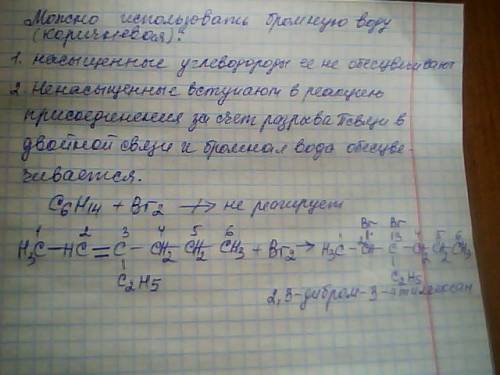 Можно использовать бромную воду
(коричневая):
1. насыщенные углеводороды ее не обесцвечивают
2. Ненасыщенные вступают в реакцию
присоединения за счет разрыва π связи в
двойной связи и бромная вода обесцве-
чивается.
C6H14 + Br2 → не реагирует
1 2 3 4 5 6 Br Br
H3C - HC = C - CH2 - CH2 - CH3 + Br2 → H3C - CH - C - CH2 - CH2 - CH3
C2H5 C2H5
2,3-дибром-3-этилгексан